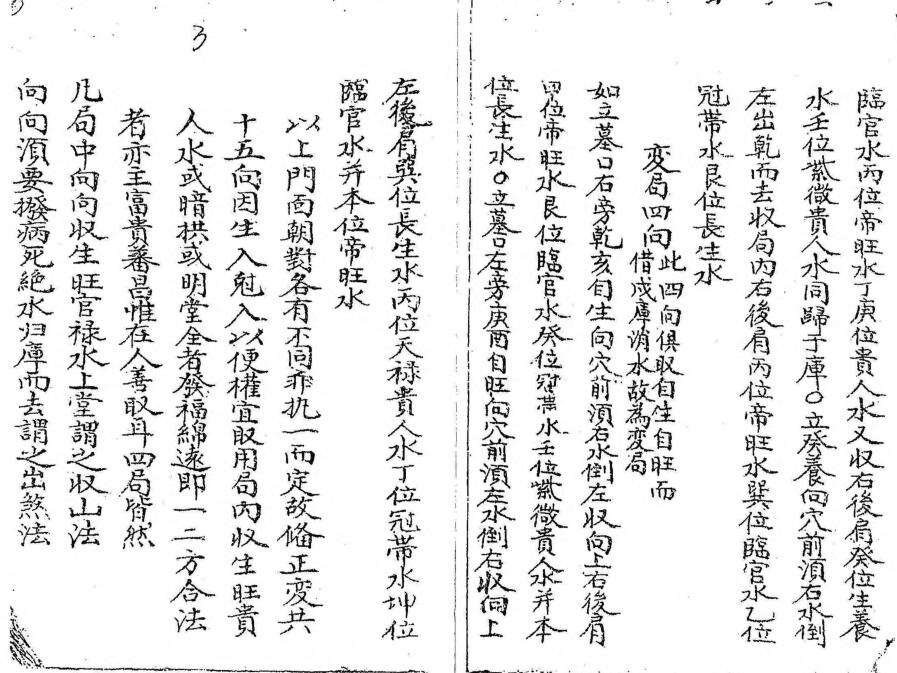 臨官水丙位帝旺水丁庚位貴人水又収右後肩癸位生養
水壬位紫微貴人水同歸于庫〇立癸養向穴前須右水倒
左出乾而去収局內右後肩丙位帝旺水巽位臨官水乙位
冠帶水艮位長生水
変局四向
此四向俱取自生自旺而
借戌庫消水故為変局
如立墓口右旁乾亥自生向穴前須右水倒左収向上右後肩
甲位帝旺水艮位臨官水癸位冠帶水壬位紫微貴人水并本
位長生水〇立墓口左旁庚酉自旺向穴前須左水倒右収向上
左後肩巽位長生水丙位天禄貴人水丁位冠帶水坤位
臨官水并本位帝旺水
以上門面朝對各有不同非扤一而定故俻正変共
十五向因生入尅入以便權宜取用局內収生旺貴
人水或暗拱或明堂全者發福綿遠即一二方合法
者亦主富貴蕃昌惟在人善取耳四局皆然
凡局中向向収生旺官禄水上堂謂之収山法
向向須要撥病死絶水归庫而去謂之出煞法
3